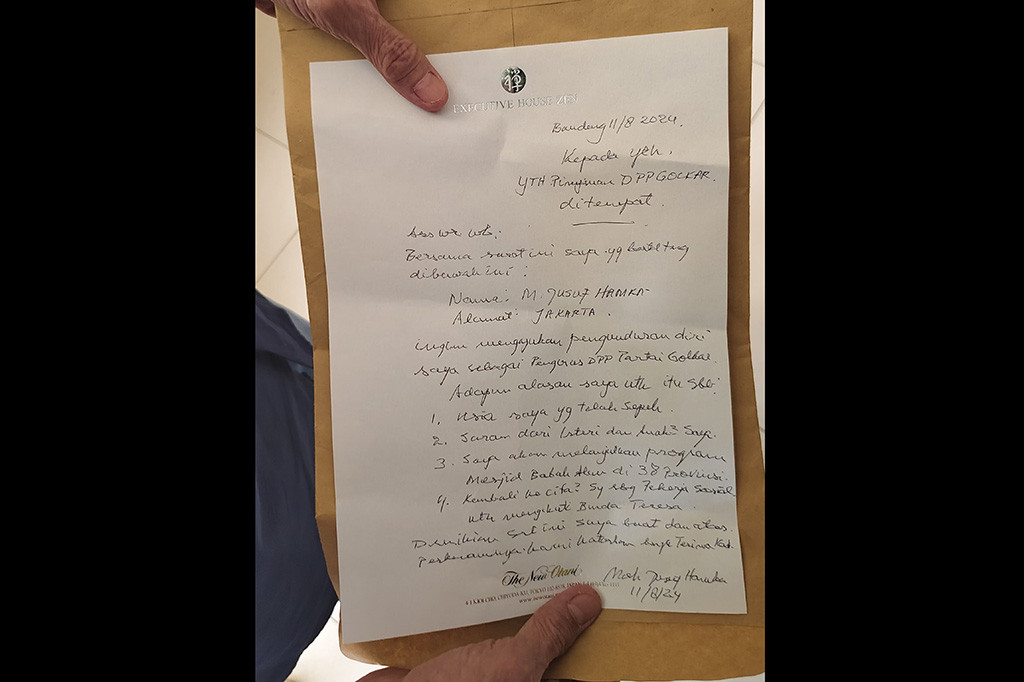 EXECUTIVE HOUSE ZEN
Bandung 11/8 2024.
Kepada yth.
YTH Pimpinan DPP GOLKAR.
ditempat.
Ass wr wb.
Bersama surat ini saya yg
dibawah ini :
Nama: M. JUSUF HAMKA
Alamat: JAKARTA.
ingin mengajukan pengunduran diri
saya sebagai Pengurus DPP Partai Golkar.
Adapun alasan saya utk itu sbb:
1. Usia saya yg telah sepuh.
2. Saran dari Isteri dan Anak² Saya.
3. Saya akan melanjutkan program
Mesjid Babah Alun di 38 Provinsi.
4. Kembali ke cita² sy sbg Pekerja Sosial
utk mengikuti Bunda Teresa.
Demikian Srt ini saya buat dan atas
Perkenannya kami haturkan Terima Kasih.
The New Otani
Moh Jusuf Hamka
11/8/24